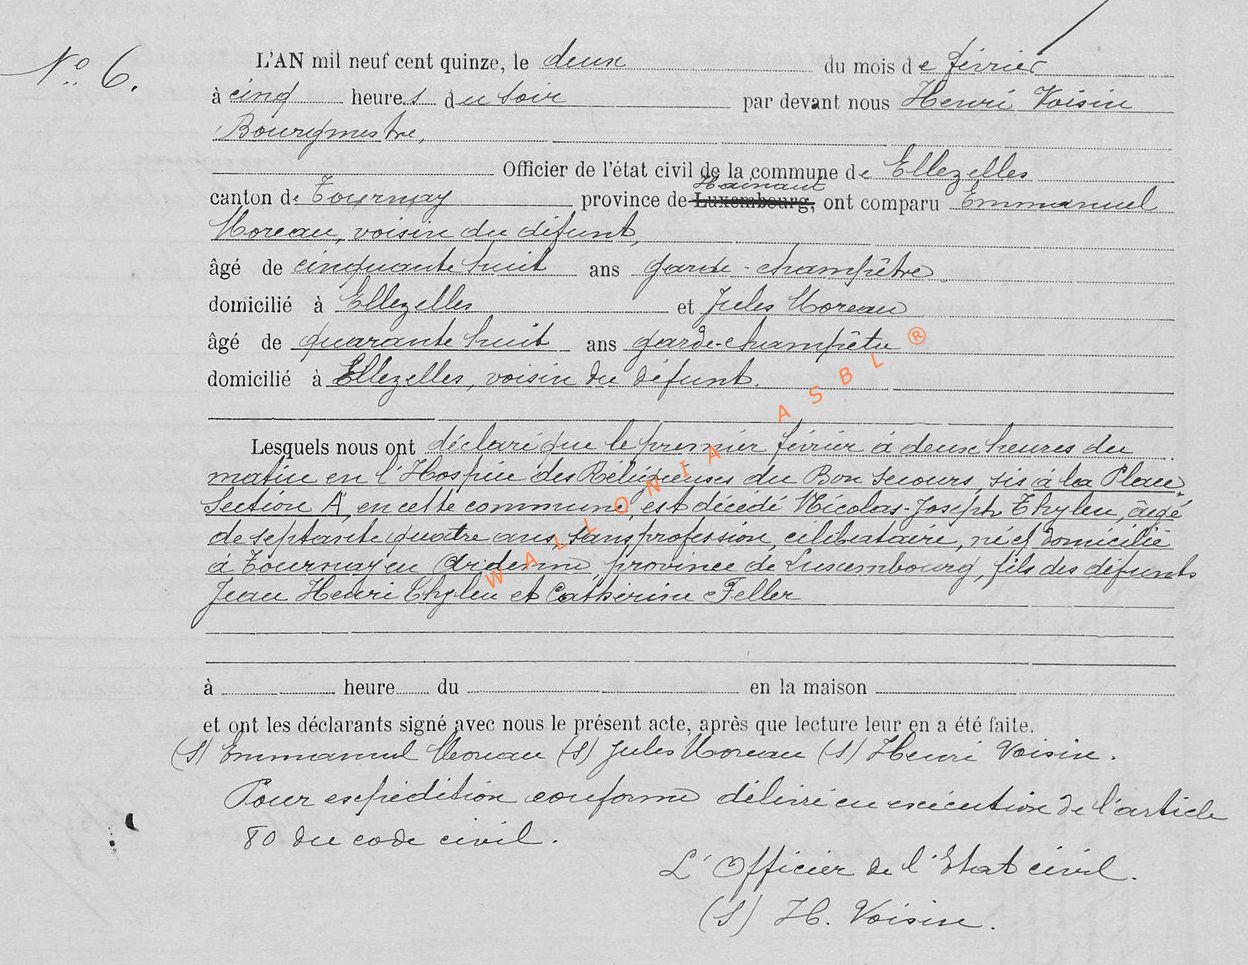 N° 6.
L'AN mil neuf cent quinze, le deux du mois de février
à cinq heures du soir par devant nous Henri Voisin
Bourgmestre,
Officier de l'état civil de la commune de Ellezelles
Hainaut
canton de Tournay province de Luxembourg, ont comparu Emmanuel
Moreau, voisin du défunt,
âgé de cinquante huit ans garde-champêtre
domicilié à Ellezelles et Jules Moreau
âgé de quarante huit ans garde-champêtre
domicilié à Ellezelles, voisin du défunt.
Lesquels nous ont déclaré que le premier février à deux heures du
matin en l'Hospice des Religieuses du Bon Secours, sis à la Place,
Section A, en cette commune, est décédé Nicolas-Joseph Thylen, âgé
de septante quatre ans, sans profession, célibataire, né et domicilié
à Tournay en Ardenne, province de Luxembourg, fils des défunts
Jean Henri Thylen et Catherine Feller
à heure du en la maison
et ont les déclarants signé avec nous le présent acte, après que lecture leur en a été faite.
(S) Emmanuel Moreau (S) Jules Moreau (S) Henri Voisin.
Pour expédition conforme délivré en exécution de l'article
80 du code civil.
L'Officier de l'Etat civil.
(S) H. Voisin.
WALLONIA ASBL ®